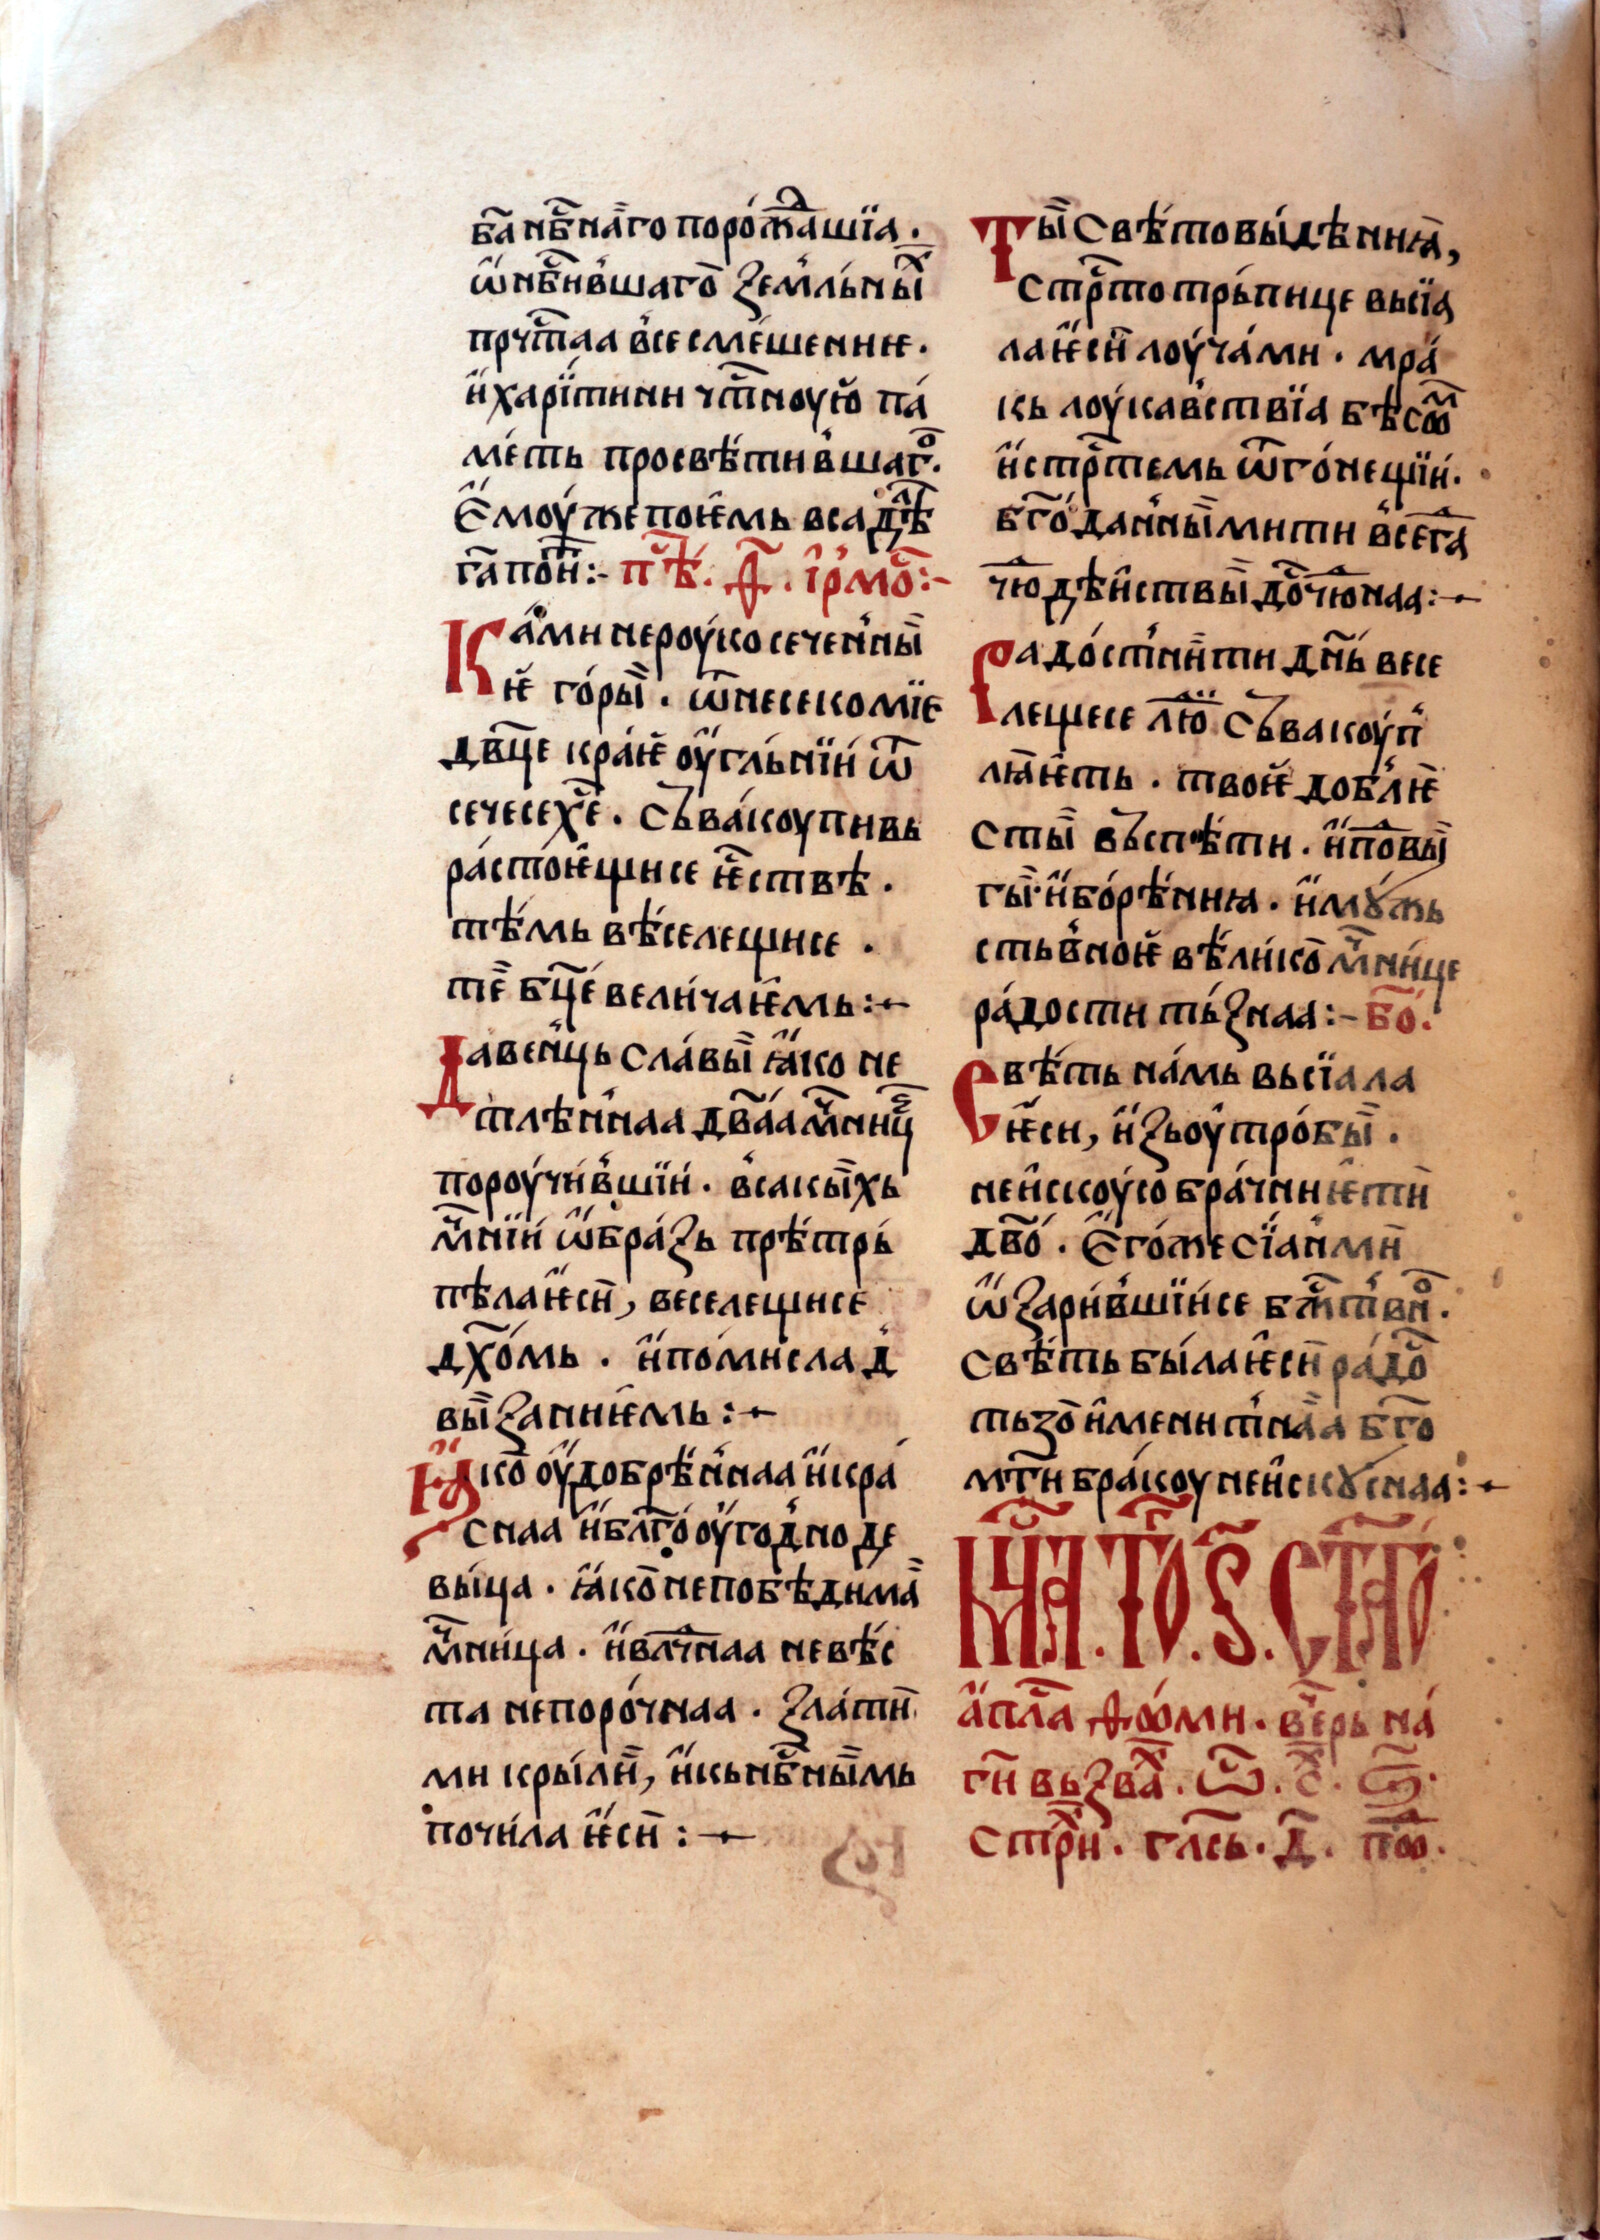 ба҃ нбⷭ҇наго порожⷣашїа ·
ѡ҆нбⷭ҇ившаго земльныⷯ
прчⷭ҇таа все смѣшенниѥ ·
и҆ харїтини чтⷭ҇ноую па
меть просвѣтившагⷪ ·
Ѥмоу же поѥмь вса дѣ
га҃ пон : - пѣⷭ҇ · ѳ҃ · і҆рмоⷭ҇ : -
Ками нероукосеченныѥ
ѥ҆ горы · ѿ несекомїе
дв҃це краѥ оугльнїи ѿ
сечесе хⷭ҇е · съвакоупивь
растоѥщисе ѥⷭ҇ствѣ ·
тѣмь веселещисе ·
те бц҃е величаѥмь : ~
Да венць славы ꙗко не
тлѣннаа два҃а мⷱ҇ницꙋ
пороучившїи · всакыхь
мⷱ҇нїи ѡ҆бразь прѣтрь
пѣла ѥси , веселещисе
дх҃омь · и҆ помисла д
вызаниѥмь : ~
Ꙗко оудобрѣннаа и҆ кра
снаа и҆ бл҃гооугодно де
вьıца · ꙗко непобѣдима
мⷱ҇ница · и҆ влчⷭ҇наа невѣс
та непорочнаа · злати
ми крыли , и҆ кь нбⷭ҇нымь
почила ѥси : ~
Ты свѣтовыдѣнниꙗ ,
стрⷭ҇тотрьпице высїа
ла ѥси лоучами · мра
кь лоукавствїа бѣсоⷨ
и҆ стрⷭ҇темь ѿгонещїи ·
бг҃одан'ными ти все га
тⷱ҇ю дѣиствы доⷭ҇тⷱ҇юнаа : ~
Радостни ти днь весе
лещесе лю съвакоуп
лꙗѥть · твоѥ добліѥ
сты въспѣти · и҆ по вы
гы и҆ борѣнниꙗ · и҆ мꙋжь
ствноѥ великомⷱ҇нице
радости тьзнаа : - бо҃ ·
Свѣть намь высїала
ѥси , и҆зь оутробы ·
неискоусобрачниѥ ти
дв҃о · Ѥгоже сїан'ми
ѡ҆заривш҆їисе бжⷭ҇твнⷪ ·
свѣть была ѥси радоⷭ҇
тьзоименитнаа бг҃о
мт҃и бракоу неискꙋснаа : ~
Мцⷭ҇а · тоⷢ · ѕ҃ · ст҃аго
апⷭ҇ла ѳѡми · вⷱ҇ерь на
ги вьзваⷯ · ѿ · с҃ ·
стрⷯи · глась · д҃ · поⷣⷪ ·